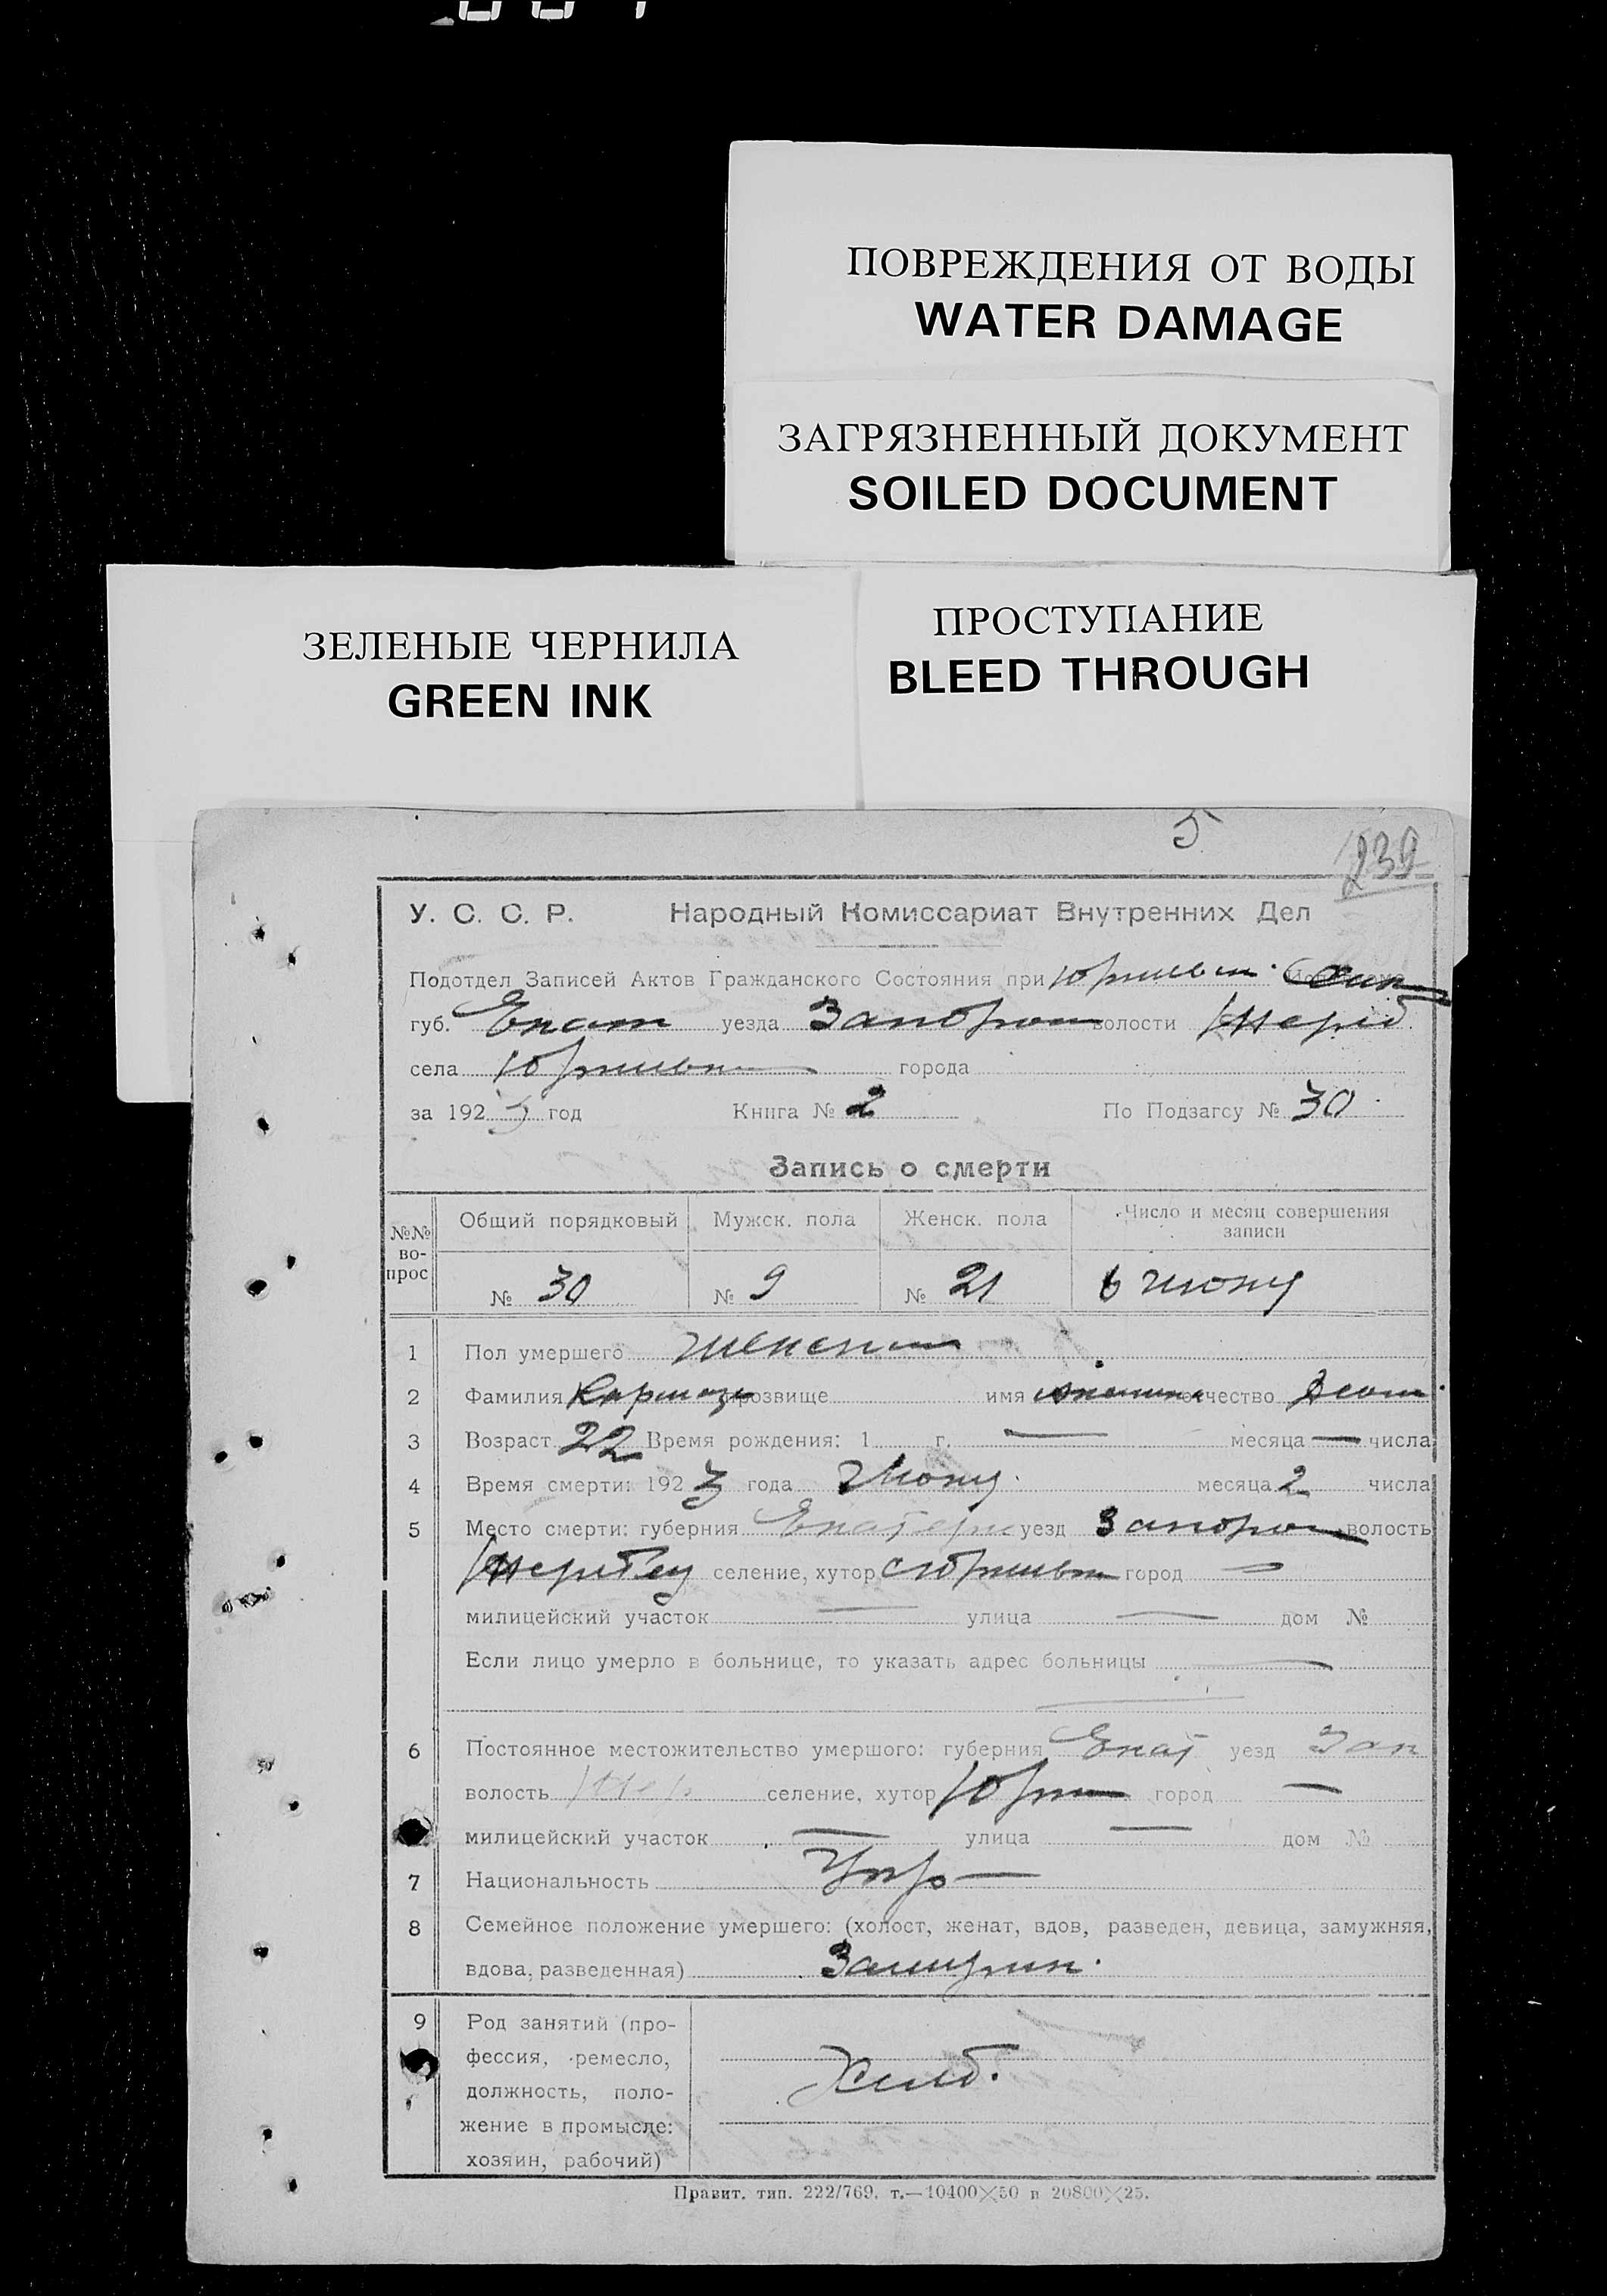 ПОВРЕЖДЕНИЯ ОТ ВОДЫ
WATER DAMAGE
ЗАГРЯЗНЕННЫЙ ДОКУМЕНТ
SOILED DOCUMENT
ЗЕЛЕНЫЕ ЧЕРНИЛА
GREEN INK
ПРОСТУПАНИЕ
BLEED THROUGH
5
239
У. С. С. Р. Народный Комиссариат Внутренних Дел
Подотдел Записей Актов Гражданского Состояния при
губ. Екат уезда Запорож волости
села города
за 192 3 год Книга № 2 По Подзагсу № 30
Запись о смерти
№№ во-прос Общий порядковый Мужск. пола Женск. пола Число и месяц совершения записи
№ 30 № 9 № 21 6 Июну
1 Пол умершего женски
2 Фамилия прозвище имя отчество
3 Возраст 22 Время рождения: 1 г. — месяца — числа
4 Время смерти: 192 3 года Июну месяца 2 числа
5 Место смерти: губерния Екатерин уезд Запорож волость
селение, хутор город —
милицейский участок — улица — дом №
Если лицо умерло в больнице, то указать адрес больницы —
6 Постоянное местожительство умершого: губерния Екат уезд Зап
волость селение, хутор город —
милицейский участок — улица — дом №
7 Национальность Укр
8 Семейное положение умершего: (холост, женат, вдов, разведен, девица, замужняя,
вдова, разведенная) Замужни
9 Род занятий (про-
фессия, ремесло,
должность, поло- Хлеб.
жение в промысле:
хозяин, рабочий)
Правит. тип. 222/769. т.—10400×50 и 20800×25.